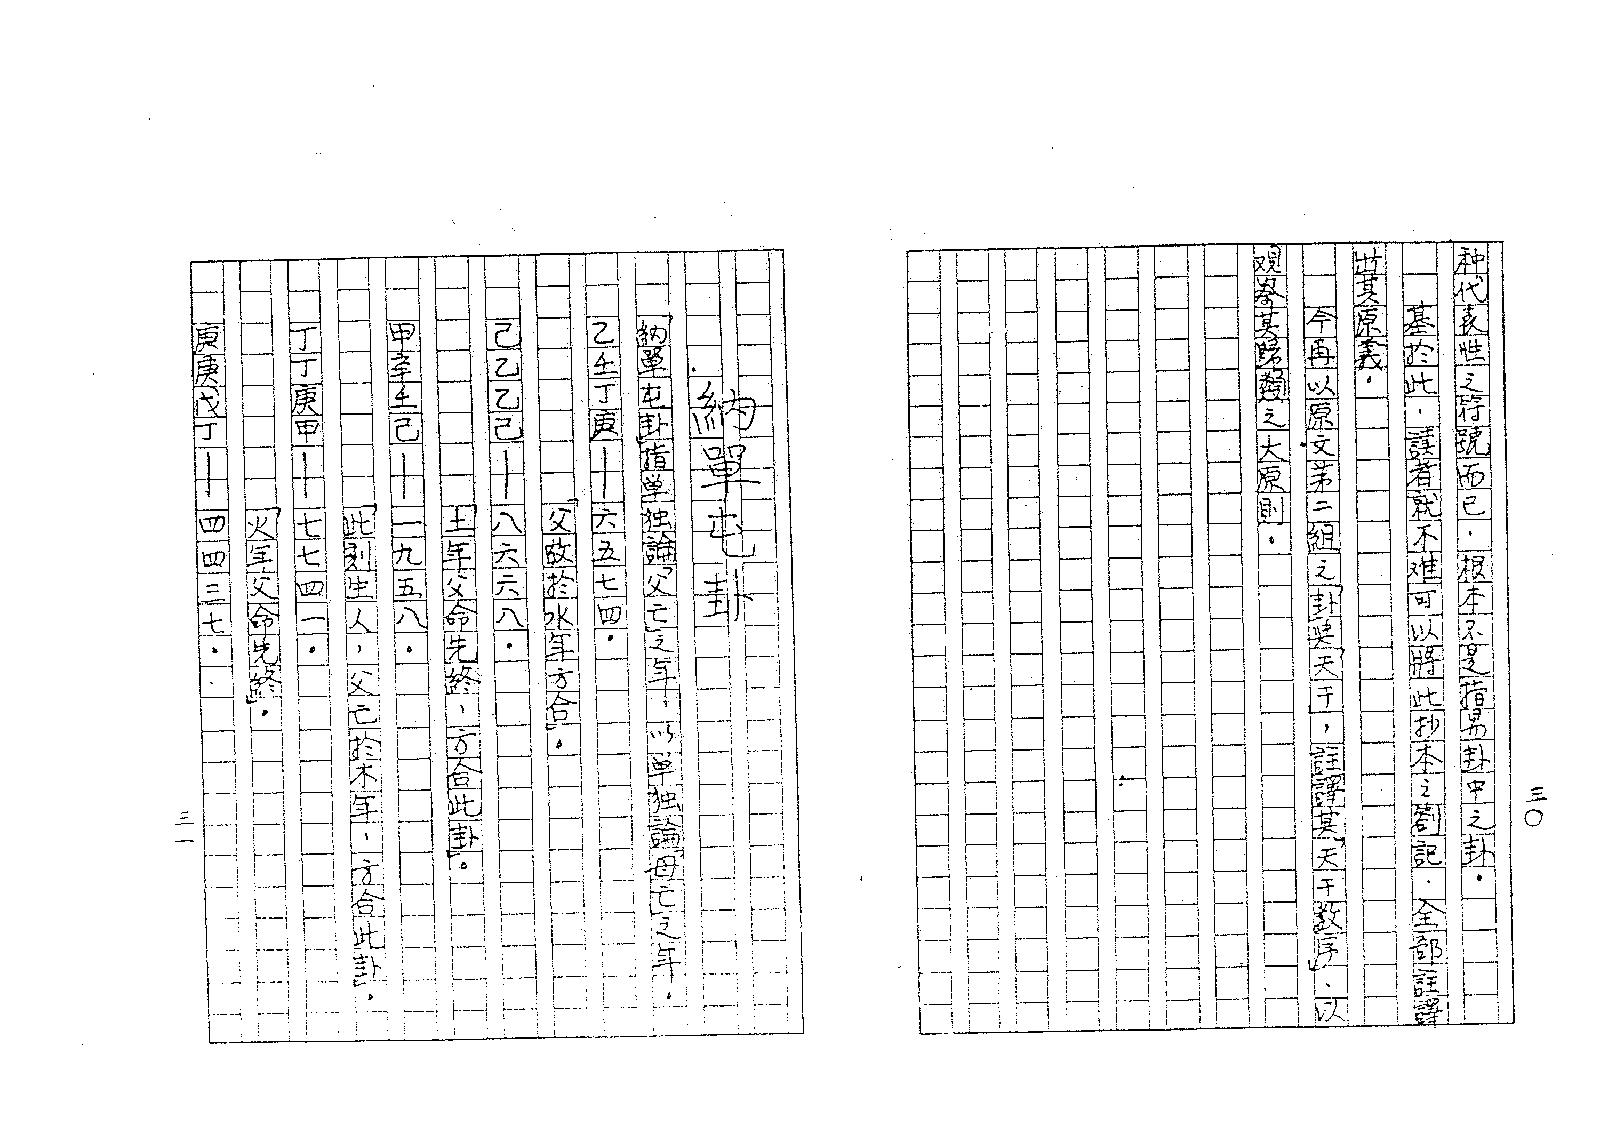 三〇
种代表性之符號而已．根本不是指易卦中之卦．
基於此．讀者就不难可以將此抄本之劄記．全部註譯
出其原義．
今再以原文第二組之「卦與天干，註譯其「天干数序」．以
观察其歸類之大原則．
納單屯卦
「納單屯卦」指单独論「父亡」之年．以单独論「母亡之年．
乙壬丁庚——六五七四．
「父故於水年方合」．
己乙乙己——八六六八．
「土年父命先終，方合此卦」．
甲辛壬己——一九五八．
「此刻生人，父亡於木年，方合此卦」．
丁丁庚甲——七七四一．
「火年父命先終」．
庚庚戊丁——四四三七．
三一